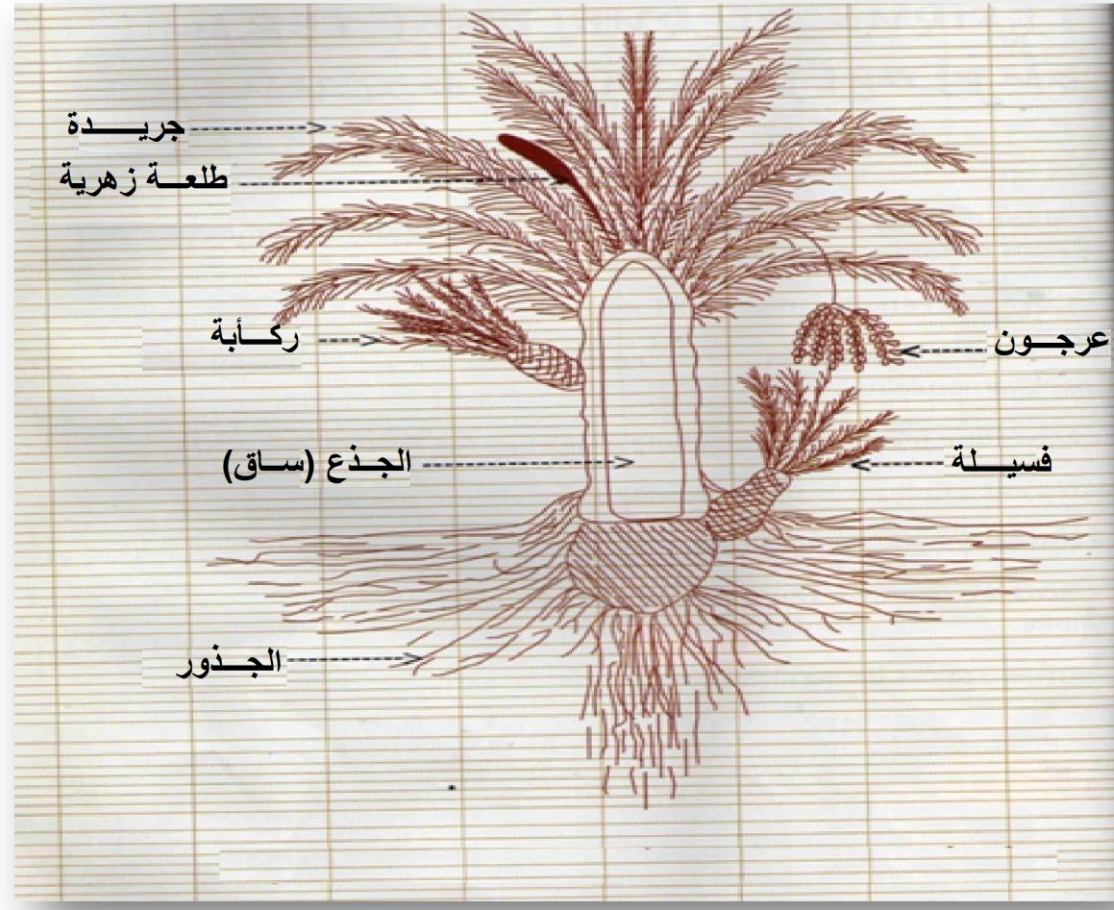 جريدة
طلعة زهرية
ركأبة
عرجون
الجذع (ساق)
فسيلة
الجذور